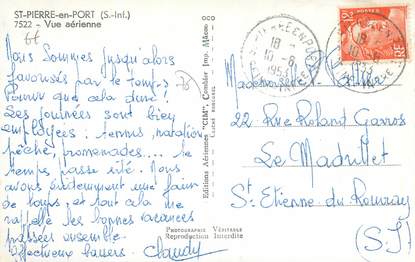 ST-PIERRE-en-PORT (S.-Inf.)
7522 - Vue aérienne
Nous sommes jusqu'alors
favorisés par le temps
Pourvu que cela dure!
Les journées sont bien
employées: tennis, natation
pêche, promenades.... le
temps passe vite. Nous
avons évidemment une faim
de loups, et tout cela me
rappelle les bonnes vacances
passées ensemble.
Affectueux baisers. Claudy
Editions Aériennes "CIM" Combier imp. Mâcon
PHOTOGRAPHIE VÉRITABLE
Reproduction Interdite
18 -
10 - 8
195
Mademoiselle
22 Rue Roland Garros
Le Madrillet
St Etienne du Rouvray
(S.I)